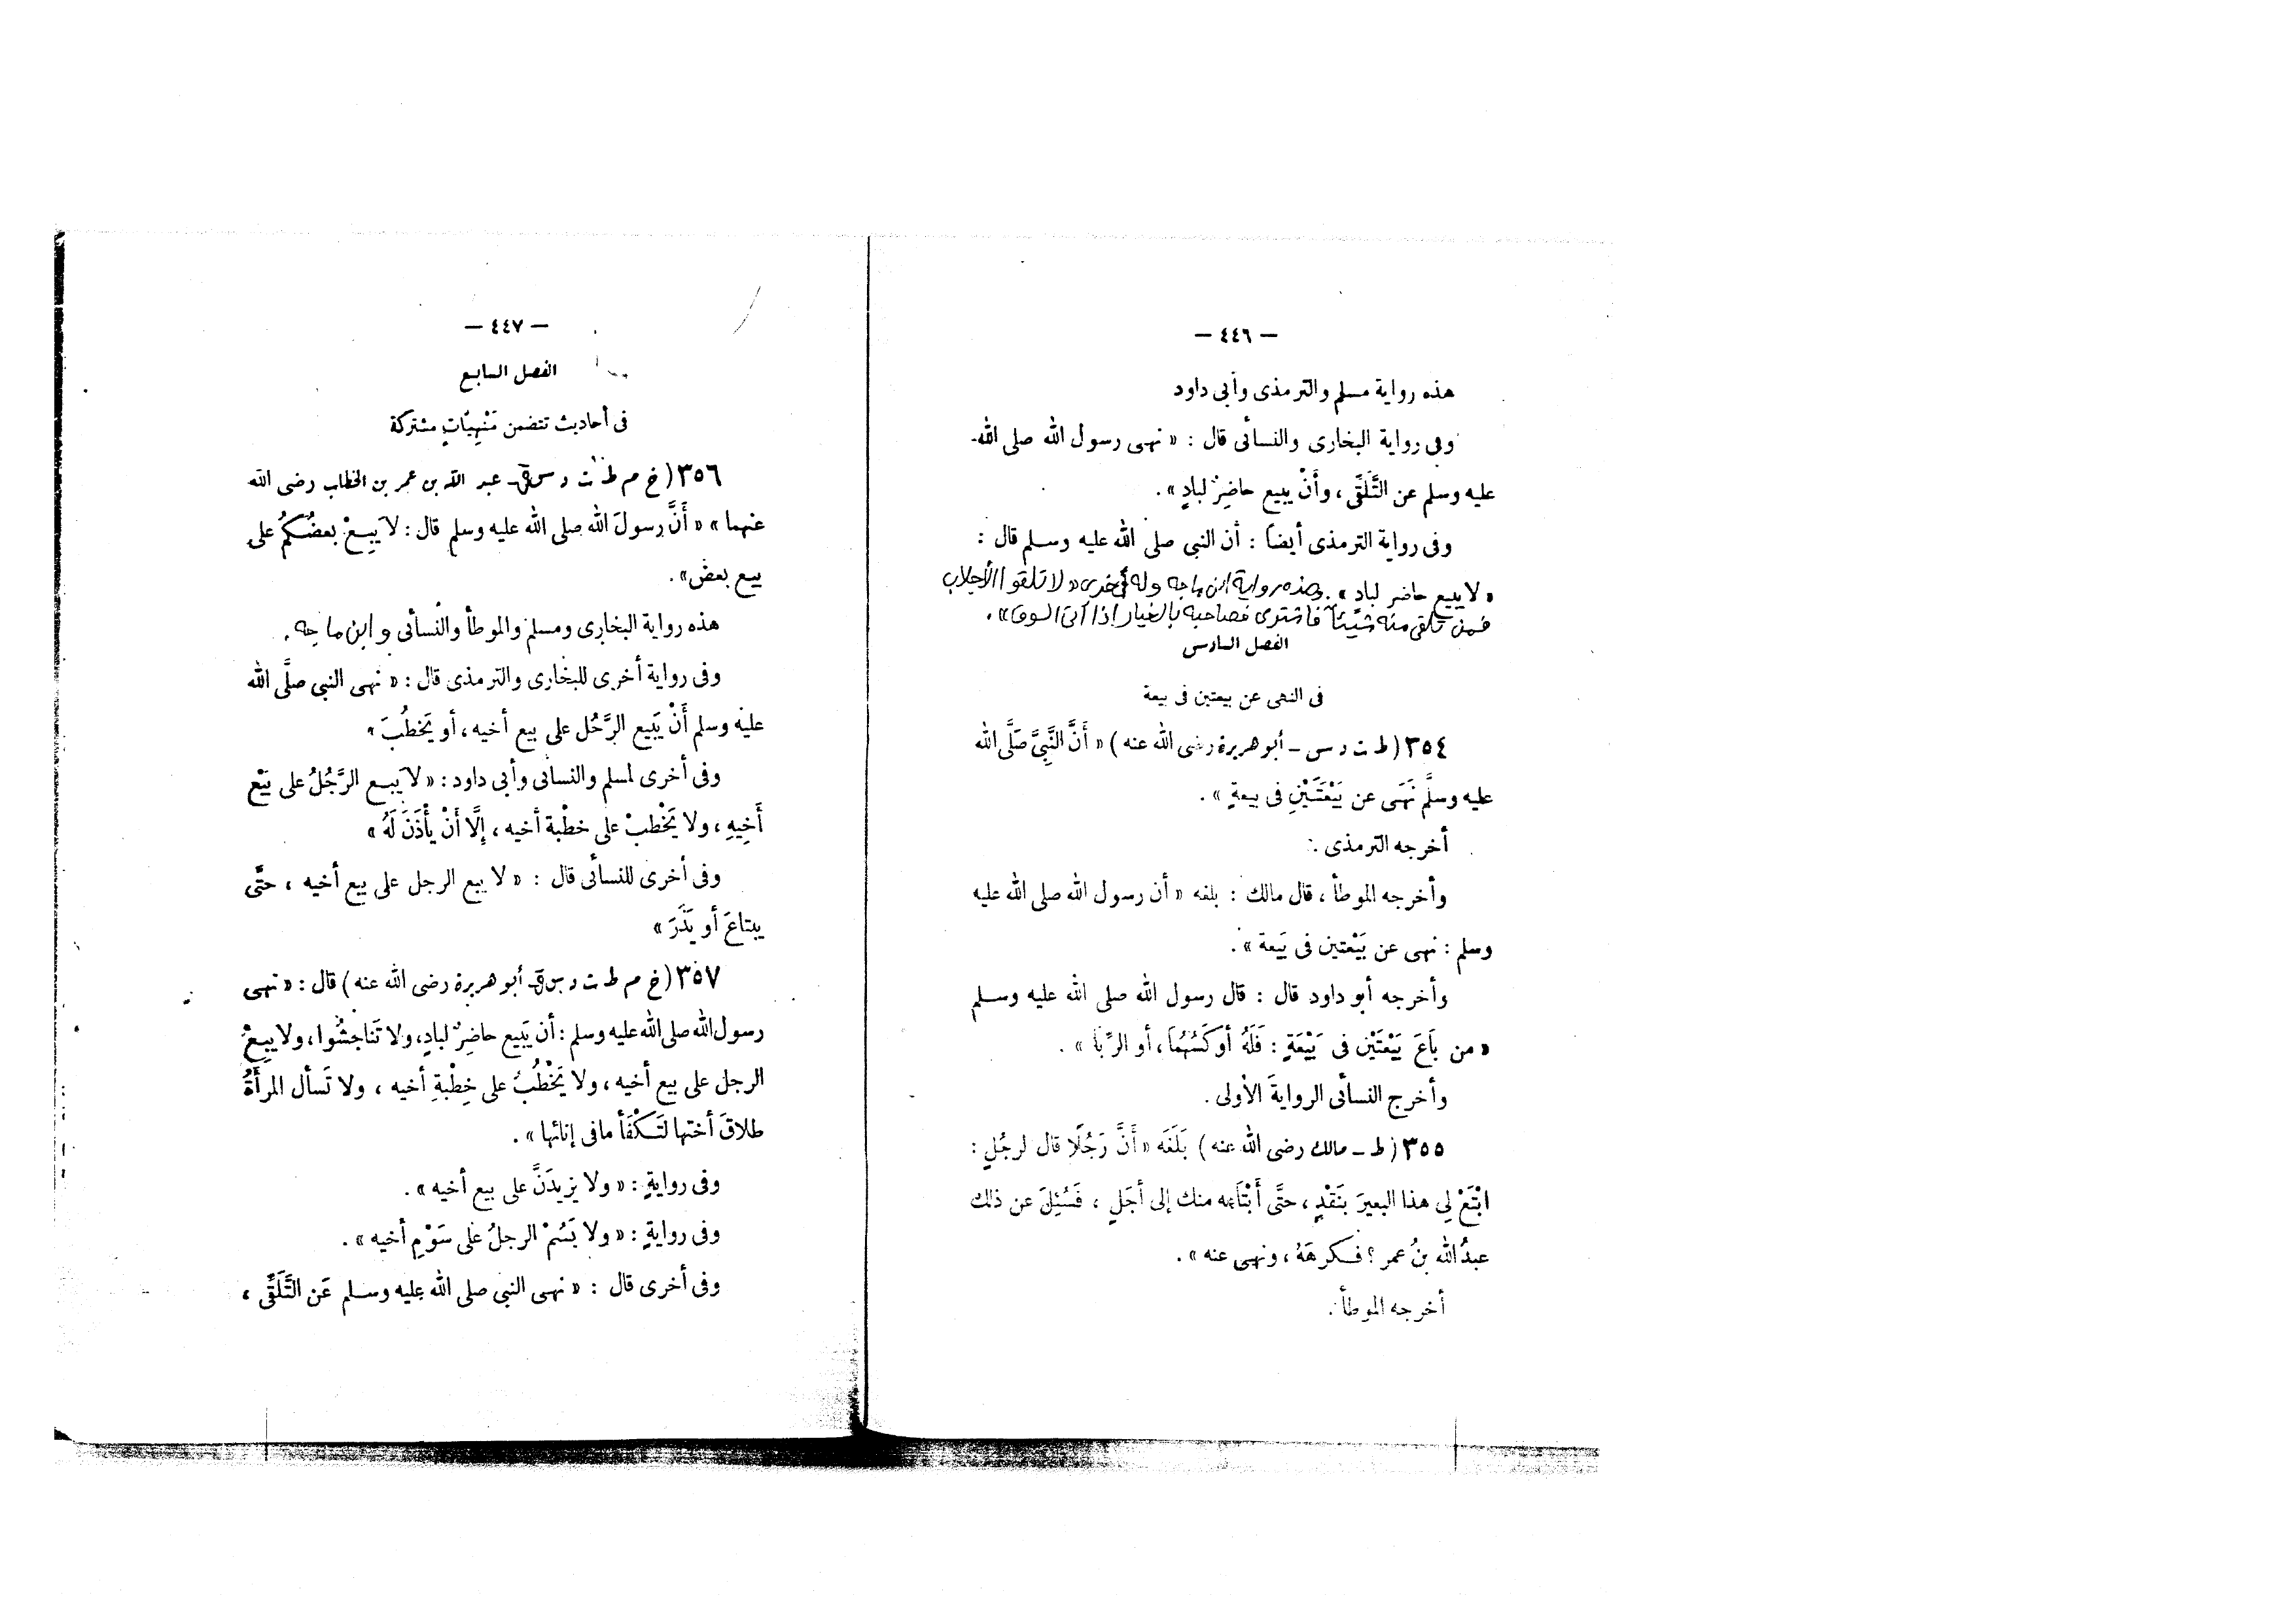 — ٤٤٦ —
هذه رواية مسلم والترمذى وأبى داود
وفى رواية البخارى والنسائى قال : « نهى رسول الله صلى الله
عليه وسلم عن التَّلَقِّى ، وأَنْ يبيع حاضِرٌ لبادٍ » .
وفى رواية الترمذى أيضاً : أن النبى صلى الله عليه وسلم قال :
« لا يبيع حاضر لبادٍ » . وهذه رواية ابن ماجه وله أخرى « لا تلقوا الأجلاب
فمن تلقى منه شيئاً فاشترى فصاحبه بالخيار إذا أتى السوق » .
الفصل السادس
فى النهى عن بيعتين فى بيعة
٣٥٤ ( ط ت د س – أبو هريرة رضى الله عنه ) « أَنَّ النَّبِىَّ صَلَّى الله
عليه وسلَّم نَهَى عن بَيْعَتَيْنِ فى بيعةٍ » .
أخرجه الترمذى .
وأخرجه الموطأ ، قال مالك : بلغه « أن رسول الله صلى الله عليه
وسلم : نهى عن بَيْعتين فى بَيعة » .
وأخرجه أبو داود قال : قال رسول الله صلى الله عليه وسلم
« من بَاعَ بَيْعَتَيْن فى بَيْعَةٍ : فَلَهُ أَوْكَسُهُمَا ، أو الرِّبَا » .
وأخرج النسائى الروايةَ الأولى .
٣٥٥ ( ط – مالك رضى الله عنه ) بَلَغَه « أَنَّ رَجُلًا قال لرجُلٍ :
ابْتَعْ لِى هذا البعيرَ بنَقْدٍ ، حتَّى أَبْتَاعه منك إلى أجَلٍ ، فَسُئِلَ عن ذلك
عبدُ الله بنُ عمر ؟ فكرهَهُ ، ونهى عنه » .
أخرجه الموطأ .
— ٤٤٧ —
الفصل السابع
فى أحاديث تتضمن مَنْهِيَّاتٍ مشتركة
٣٥٦ ( خ م ط ت د س ق – عبد الله بن عمر بن الخطاب رضى الله
عنهما » « أَنَّ رسولَ الله صلى الله عليه وسلم قال : لاَ يَبِعْ بعضُكُمْ على
بيع بعض » .
هذه رواية البخارى ومسلم والموطأ والنسائى وابن ماجه .
وفى رواية أخرى للبخارى والترمذى قال : « نهى النبى صلَّى الله
عليه وسلم أَنْ يَبيع الرَّجُل على بيع أخيه ، أو يَخطُبَ »
وفى أخرى لمسلم والنسائى وأبى داود : « لاَ يَبِع الرَّجُلُ على بَيْعِ
أَخِيهِ ، ولا يَخْطبْ على خطْبة أخيه ، إِلَّا أَنْ يأْذَنَ لَهُ »
وفى أخرى للنسائى قال : « لا يبع الرجل على بيع أخيه ، حتَّى
يبتاعَ أو يَذَرَ »
٣٥٧ ( خ م ط ت د س ق – أبو هريرة رضى الله عنه ) قال : « نهى
رسول الله صلى الله عليه وسلم : أن يَبيع حاضِرٌ لبادٍ ، ولا تَناجَشُوا ، ولا يبِعْ
الرجل على بيع أخيه ، ولا يَخْطُبُ على خِطْبةِ أخيه ، ولا تَسأل المرأَةُ
طلاقَ أختها لتَكْفَأ مافى إنائها » .
وفى روايةٍ : « ولا يزيدَنَّ على بيع أخيه » .
وفى روايةٍ : « ولا يَسُمْ الرجلُ على سَوْمِ أخيه » .
وفى أخرى قال : « نهى النبى صلى الله عليه وسلم عَن التَّلَقِّى ،